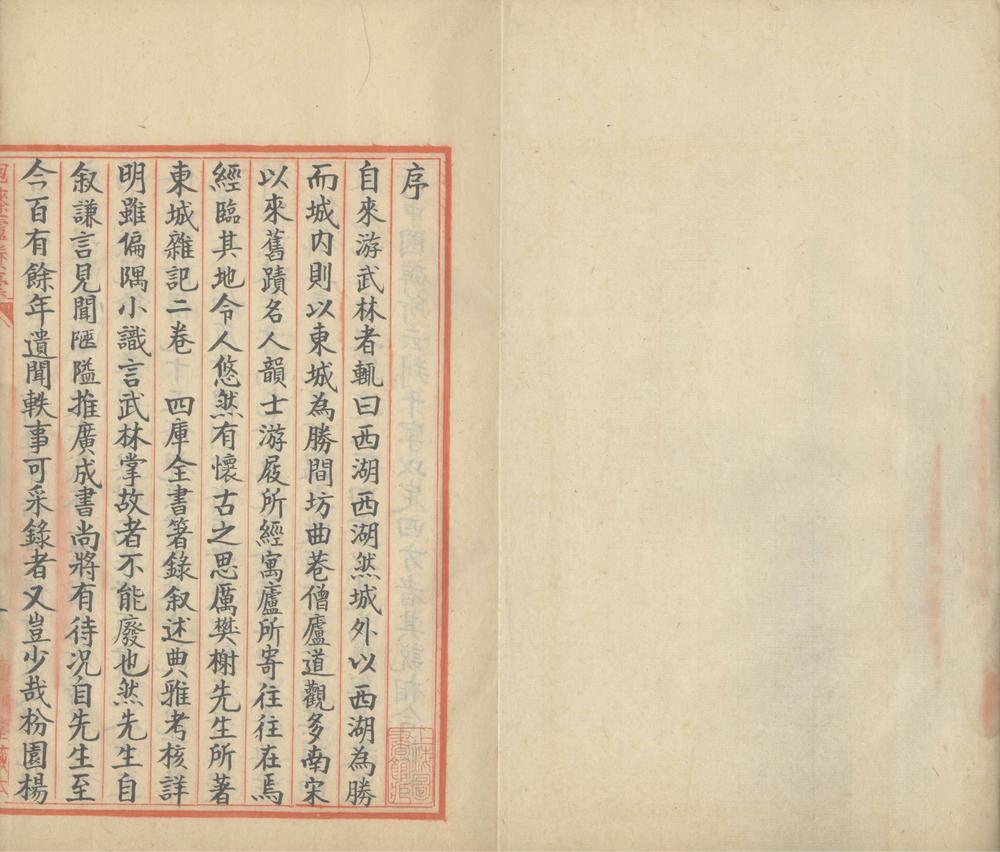 序
自來游武林者輒曰西湖西湖然城外以西湖為勝
而城内則以東城為勝間坊曲巷僧廬道觀多南宋
以來舊蹟名人韻士游屐所經寓廬所寄往往在焉
經臨其地令人悠然有懷古之思厲樊榭先生所著
東城雜記二卷　四庫全書箸錄叙述典雅考核詳
明雖偏隅小識言武林掌故者不能廢也然先生自
叙謙言見聞陋隘推廣成書尚將有待况自先生至
今百有餘年遺聞軼事可采錄者又豈少哉枌園楊